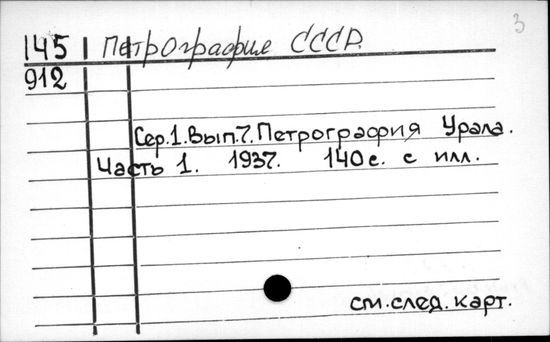 3
145 Петрография СССР.
912
Сер.1.Вып.7.Петрография Урала.
Часть 1. 1937. 140с. с илл.
см.след.карт.